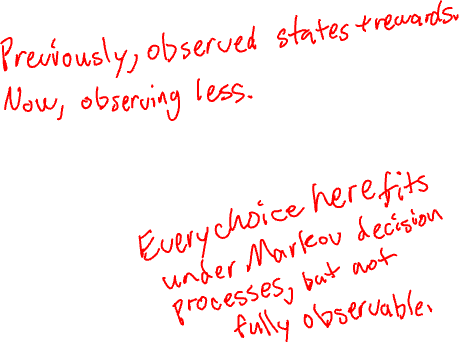 Previously, observed states + rewards.
Now, observing less.
Every choice here fits
under Markov decision
processes, but not
fully observable.